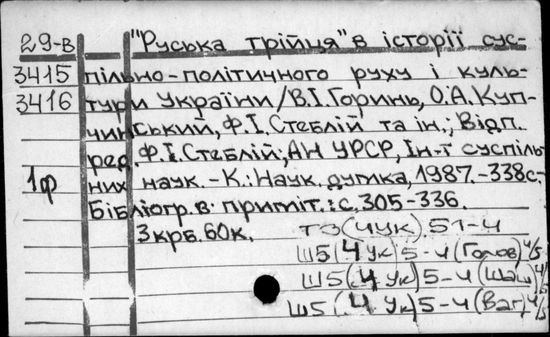 29-в "Руська трійця" в історії сус-
3415 пільно-політичного руху і куль-
3416 тури України/В.І.Горинь, О.А.Куп-
чинський, Ф.І.Стеблій та ін.; Відп.
ред. Ф.І.Стеблій; АН УРСР, Ін-т суспіль
1ф них наук.-К.: Наук. думка, 1987.-338с.-
Бібліогр.в: приміт.: с.305-336.
3крб.60к. Т3(4УК)51-4
Ш5(4УК)5-4(Голов) 4/5
Ш5(4УК)5-4(Шаш) 4/5
Ш5(4УК)5-4(Ваг) 4/5